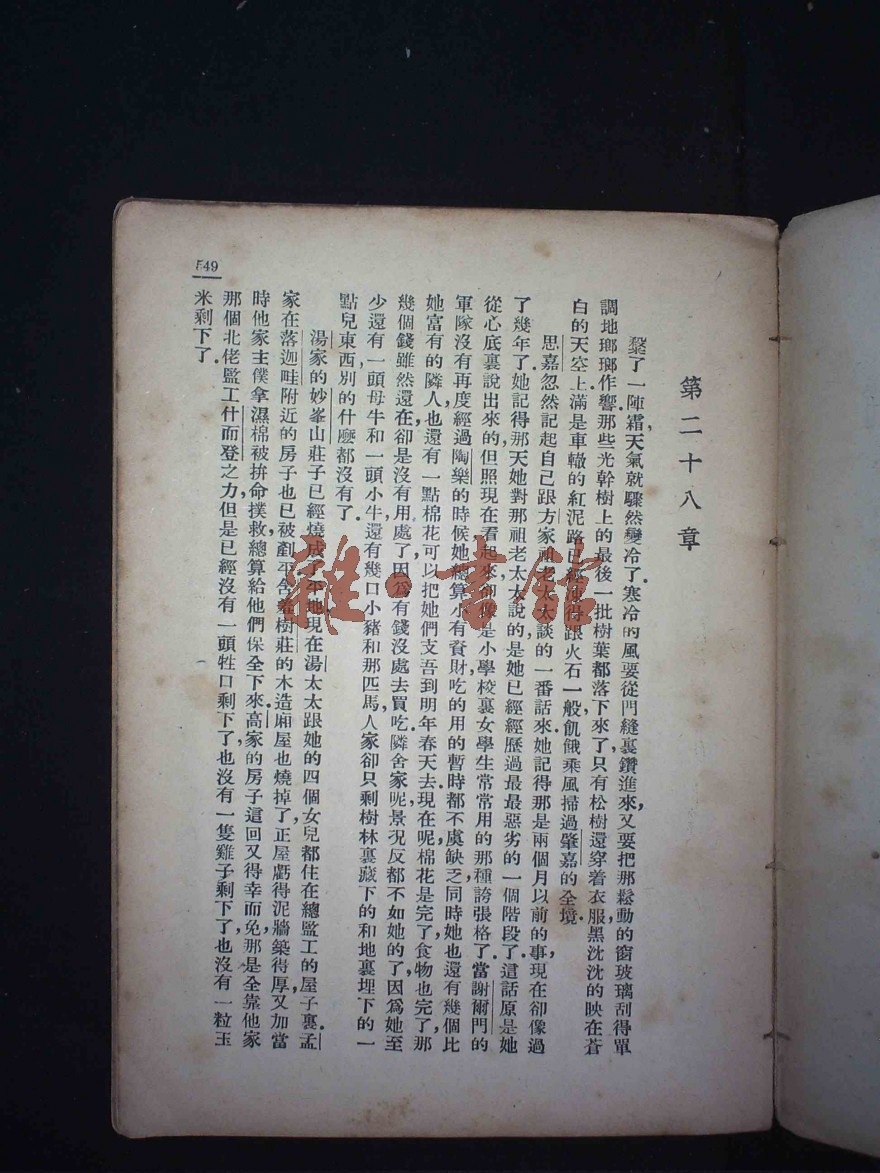 第二十八章
了一陣霜,天氣就驟然變冷了.寒冷的風要從門縫裏鑽進來,又要把那鬆動的窗玻璃刮得單
調地瑯瑯作響.那些光幹樹上的最後一批樹葉都落下來了,只有松樹還穿着衣服,黑沈沈的映在蒼
白的天空上.滿是車轍的紅泥路已經凍得跟火石一般,飢餓乘風掃過肇嘉的全境.
思嘉忽然記起自己跟方家祖老太太談的一番話來.她記得那是兩個月以前的事,現在卻像過
了幾年了.她記得那天她對那祖老太太說的,是她已經經歷過最最惡劣的一個階段了.這話原是她
從心底裏說出來的,但照現在看起來,卻像是小學校裏女學生常常用的那種誇張格了.當謝爾門的
軍隊沒有再度經過陶樂的時候,她總算小有資財,吃的用的暫時都不虞缺乏,同時她也還有幾個比
她富有的隣人,也還有一點棉花可以把她們支吾到明年春天去.現在呢,棉花是完了,食物也完了,那
幾個錢雖然還在,卻是沒有用處了,因爲有錢沒處去買吃.隣舍家呢,景況反都不如她的了,因爲她至
少還有一頭母牛和一頭小牛,還有幾口小豬和那匹馬,人家卻只剩樹林裏藏下的和地裏埋下的一
點兒東西,別的什麽都沒有了.
湯家的妙峯山莊子已經燒成了平地,現在湯太太跟她的四個女兒都住在總監工的屋子裏.孟
家在落迦哇附近的房子也已被剷平.含着樹莊的木造廂屋也燒掉了,正屋虧得泥牆築得厚,又加當
時他家主僕拿濕棉被拚命撲救,總算給他們保全下來.高家的房子這回又得幸而免,那是全靠他家
那個北佬監工什而登之力,但是已經沒有一頭牲口剩下了,也沒有一隻雞子剩下了,也沒有一粒玉
米剩下了.
549
雜·書館